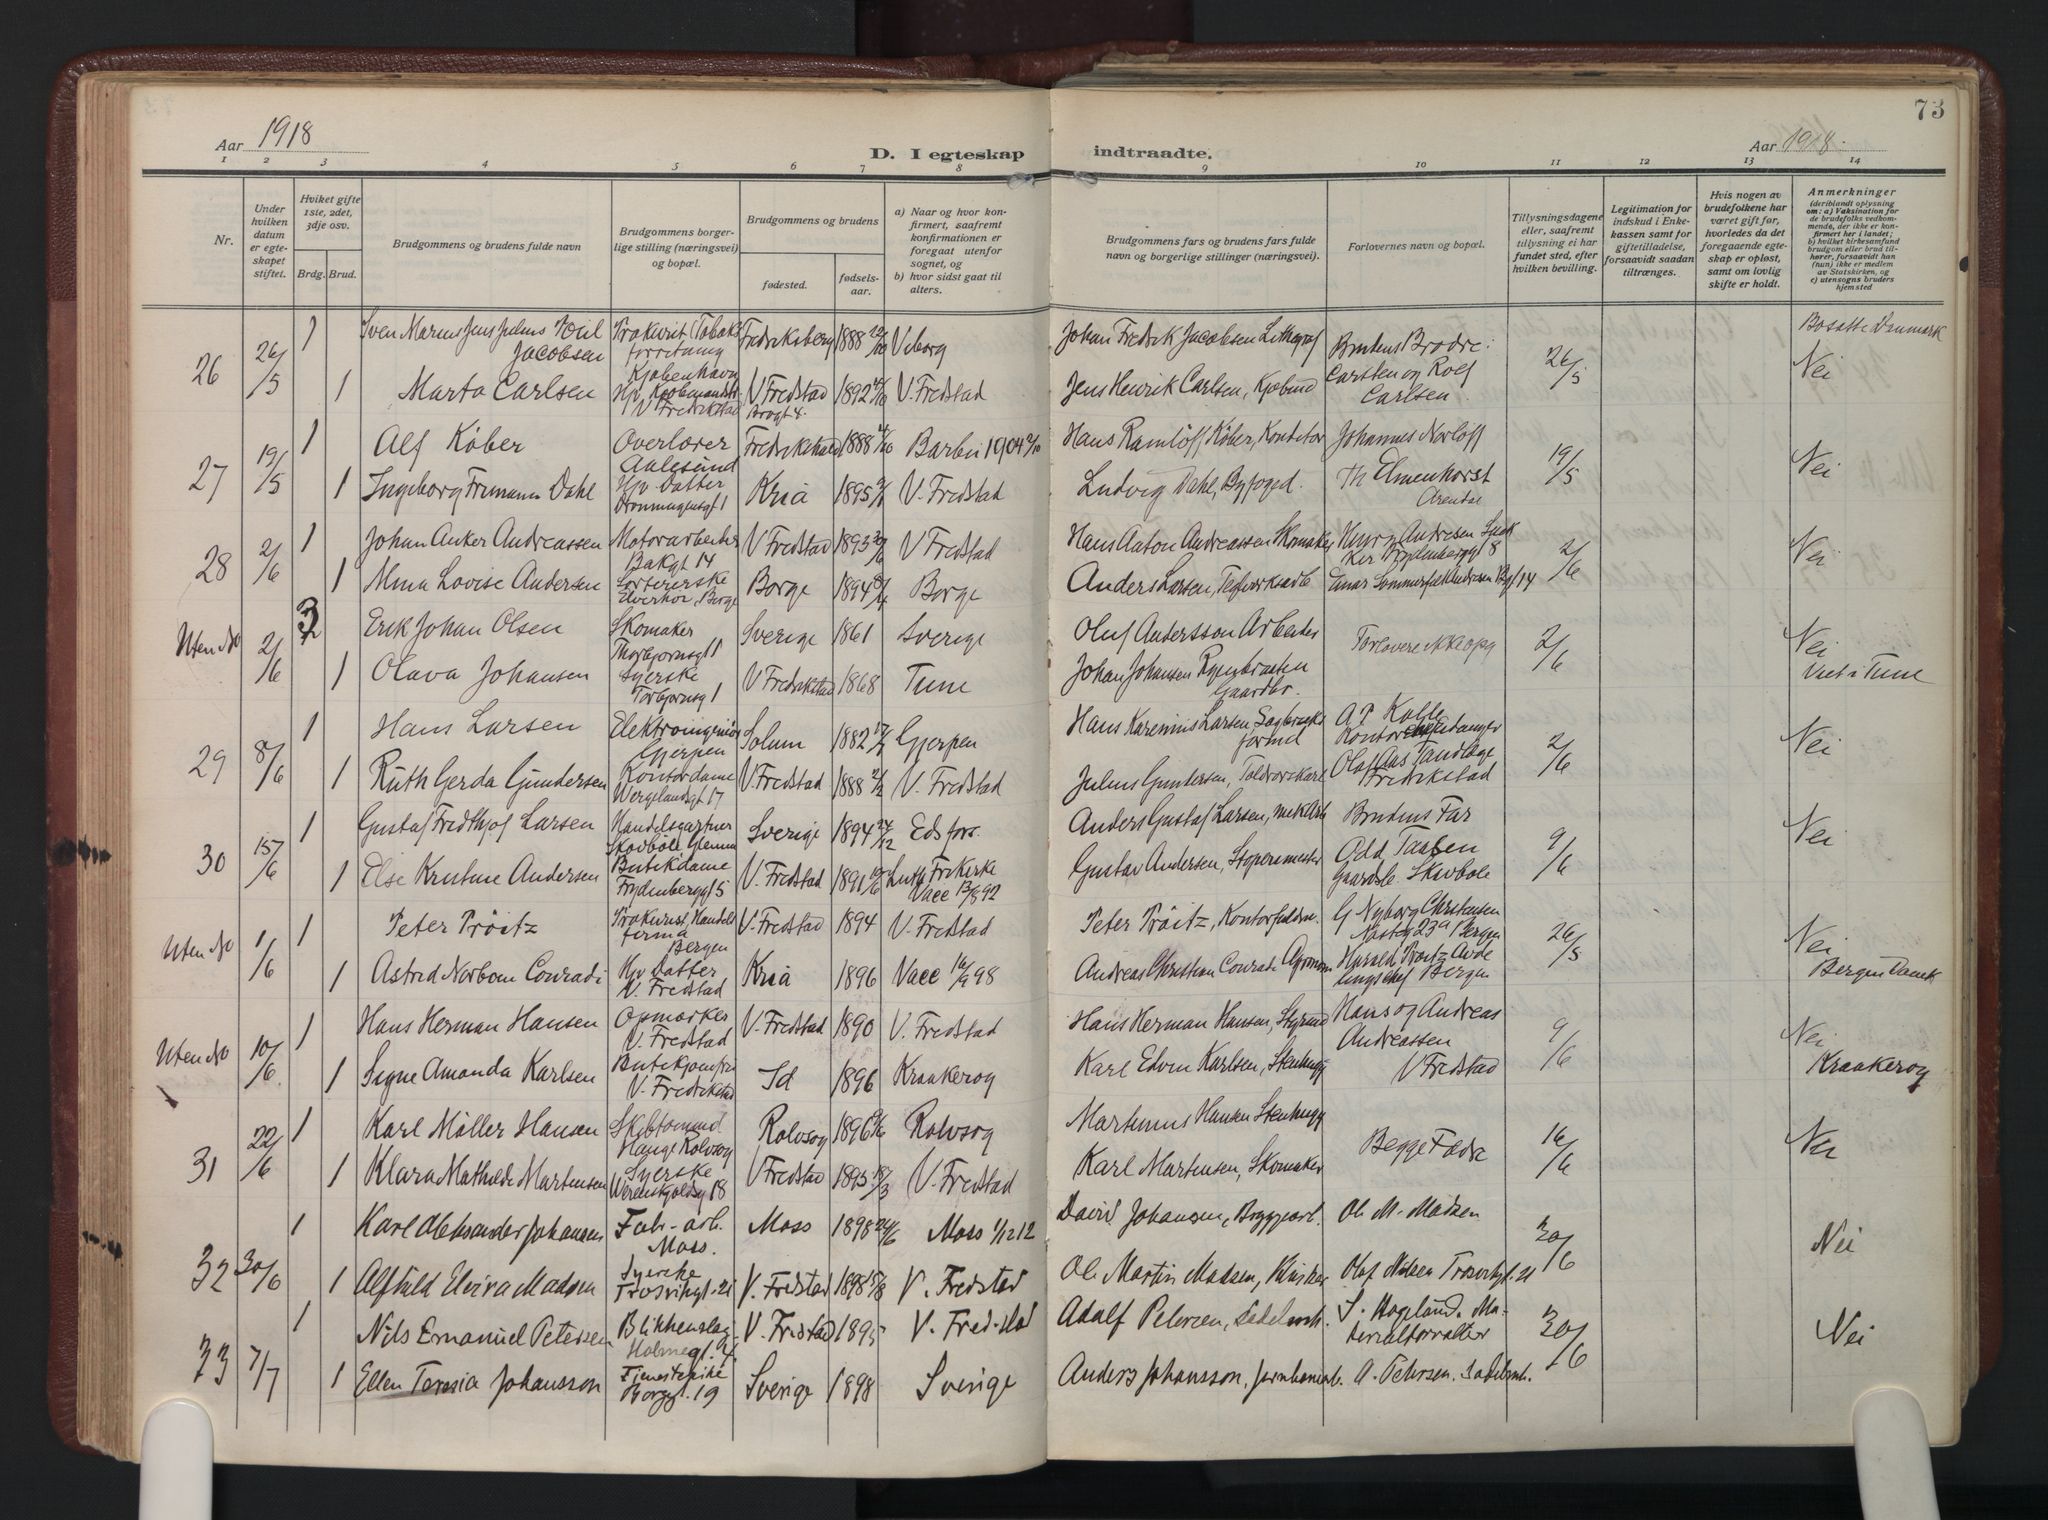 73
Aar 1918
D. I egteskap indtraadte.
Aar 1918.
1 2 3 4 5 6 7 8 9 10 11 12 13 14
Nr.
Under hvilken datum er egteskapet stiftet.
Hviket gifte 1ste, 2det, 3dje osv.
Brdg. Brud.
Brudgommens og brudens fulde navn
Brudgommens borgerlige stilling (næringsvei) og bopæl.
Brudgommens og brudens
fødested.
fødselsaar.
a) Naar og hvor konfirmert, saafremt konfirmationen er foregaat utenfor sognet, og
b) hvor sidst gaat til alters.
Brudgommens fars og brudens fars fulde navn og borgerlige stillinger (næringsvei).
Forlovernes navn og bopæl.
Tillysningsdagene eller, saafremt tillysning ei har fundet sted, efter hvilken bevilling.
Legitimation for indskud i Enkekassen samt for giftetilladelse, forsaavidt saadan tiltrænges.
Hvis nogen av brudefolkene har været gift før, hvorledes da det foregaaende egteskap er opløst, samt om lovlig skifte er holdt.
Anmerkninger
(deriblandt oplysning om: a) Vaksination for de brudefolks vedkommende, der ikke er konfirmert her i landet; b) hvilket kirkesamfund brudgom eller brud tilhører, forsaavidt han (hun) ikke er medlem av Statskirken, og c) utensogns bruders hjemsted
26 26/5 1 Sven Marius Jens Julius Jacobsen Prokurist Tobaksforretning Kjøbenhavn Fredriksberg 1888 Viborg Johan Fredrik Jacobsen Lithograf Brudens Brødre: Carsten og Rolf Carlsen 26/5 Bosatte Danmark Nei
1 Marta Carlsen V. Fredrikstad V Fredstad 1892 V. Fredstad Jens Henrik Carlsen, Kjøbmd
27 19/5 1 Alf Køber Overlærer Aalesund Fredrikshald 1888 Barbu 1904 Hans Ramlöff Køber, Konditor Johannes Norløff 19/5 Nei
1 Ingeborg Frimann Dahl Hjv Datter Dronningensgt 1 Kria 1895 V. Fredstad Ludvig Dahl, Byfoged. Th Elmenhorst Arendal
28 2/6 1 Johan Anker Andreassen Motorarbeider Bakgt 14 V Fredstad 1893 V Fredstad Hans Anton Andreassen Skomaker Henry Andresen 2/6 Nei
1 Mina Lovise Andersen Sortererske Elverhoi, Borge Borge 1894 Borge Anders Larsen, Teglverksarb
Uten No 2/6 3 Erik Johan Olsen Skomaker Thorbjørnsgt 1 Sverige 1861 Sverige Oluf Andersson Arbeider Forlovere ikke opg 2/6 Nei
1 Olava Johansen Syerske Torbjørnsg 1 V Fredrikstad 1868 Tune Johan Johansen Gaardbr. Viet i Tune
29 8/6 1 Hans Larsen Elektroingeniør Gjerpen Solum 1882 Gjerpen Hans Karenius Larsen Sagbruksformd A P Kolle 2/6 Nei
1 Ruth Gerda Gundersen Kontordame Wergelandsgt 17 V. Fredstad 1888 V. Fredstad Julius Gundersen, Toldrorskarl Olaf Aas Tandlæge Fredrikstad
30 15/6 1 Gustaf Fredthjof Larsen Handelsgartner Skovbøle Glemm Sverige 1894 24/12 Eds fors. Anders Gustaf Larsen, mek Arb Brudens Far 9/6 Nei
1 Else Kristine Andersen Butikdame Frydenberggt 5 V. Fredstad 1891 Luth Frikirke Gustav Andersen, Støpermester Odd Gaardbr. Skovbøle
Uten No 1/6 1 Peter Tröitz Prokurist, Handelsfirma Bergen V. Fredstad 1894 V. Fredstad Peter Tröitz, Kontorfuldm. G Nyborg Christensen Bergen 26/5 Nei
1 Astrid Norbom Conradi Hjv Datter V. Fredstad Kria 1896 Vacc 16/9 98 Andreas Christian Conradi Agronom Harald Tröitz Avdelingschef Bergen Bergens
Uten No 10/6 1 Hans Herman Hansen Opmerker V. Fredstad V. Fredstad 1890 V. Fredstad Hans Herman Hansen, Styrmd Hans og Andreas Andreassen V Fredstad 9/6 Nei
1 Signe Amanda Karlsen V. Fredrikstad Id 1896 Kraakerøy Karl Edvin Karlsen, Stenhugg Kraakerøy
31 22/6 1 Karl Møller Hansen Hauge Rolvsøy Rolvsøy 1896 Rolvsøy Martinius Hansen Stenhugg Begge Fædre 16/6 Nei
1 Klara Mathilde Martensen Syerske Werenskjoldsg 18 V Fredstad 1895 18/3 V. Fredstad Karl Martensen, Skomaker
32 30/6 1 Karl Aleksander Johansen Fabr-arb. Moss. Moss 1898 Moss 1/12 12 David Johansen, Bryggearb. Ole M. Madsen 30/6 Nei
1 Alfhild Elvira Madsen Syerske Trosvikgt. 21 V. Fredstad 1898 V. Fredstad Ole Martin Madsen, Olaf Nilsen Trosvikgt. 21
33 7/7 1 Nils Emanuel Petersen Blikkenslag. Holmegt. 4. V. Fredstad 1895 V. Fredstad Adolf Petersen, Sadelmk. S. Hogland. Materialforvalter 30/6 Nei
1 Ellen Teresia Johansson Tjenestepike Borggt. 19 Sverige 1898 Sverige Anders Johansson, A. Petersen. Sadelmk.